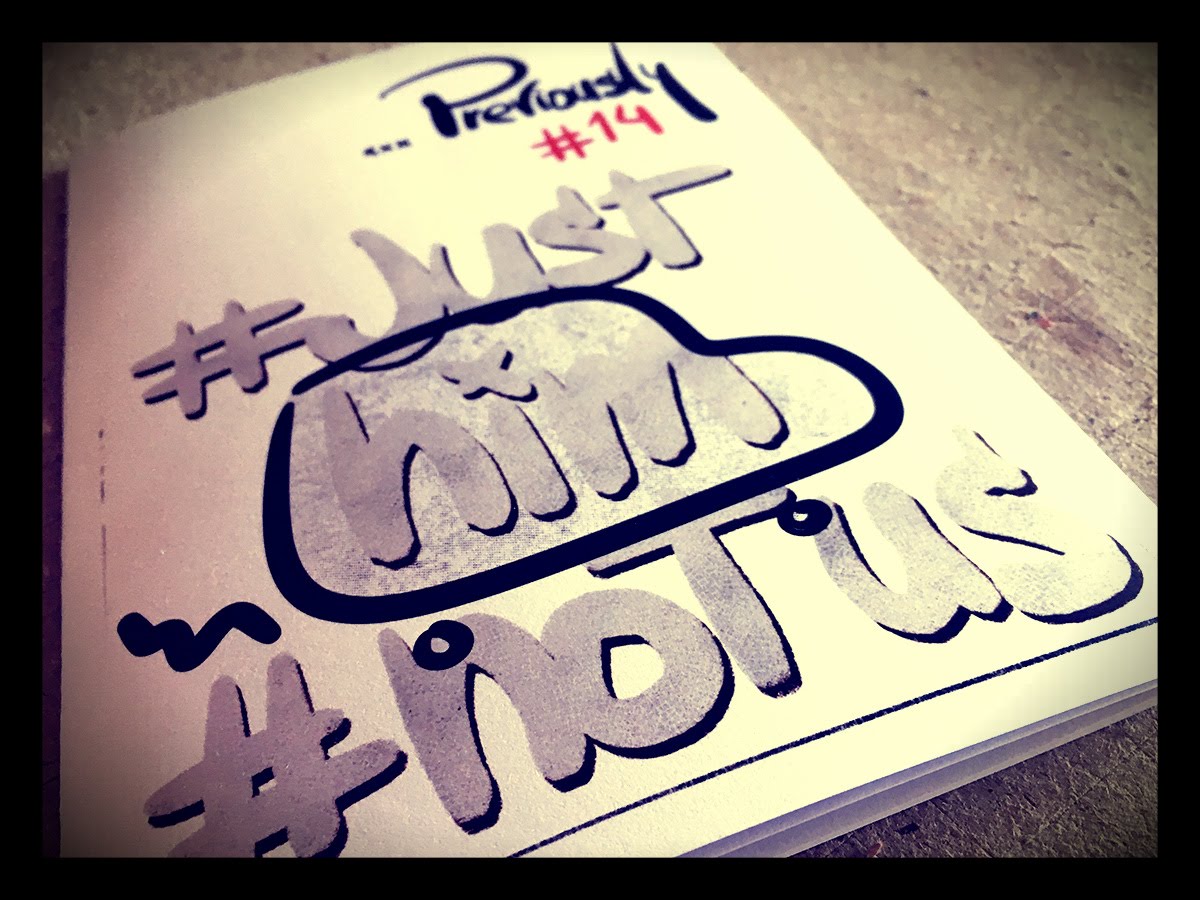 ... Previously
#14
#Just
him
#noT us